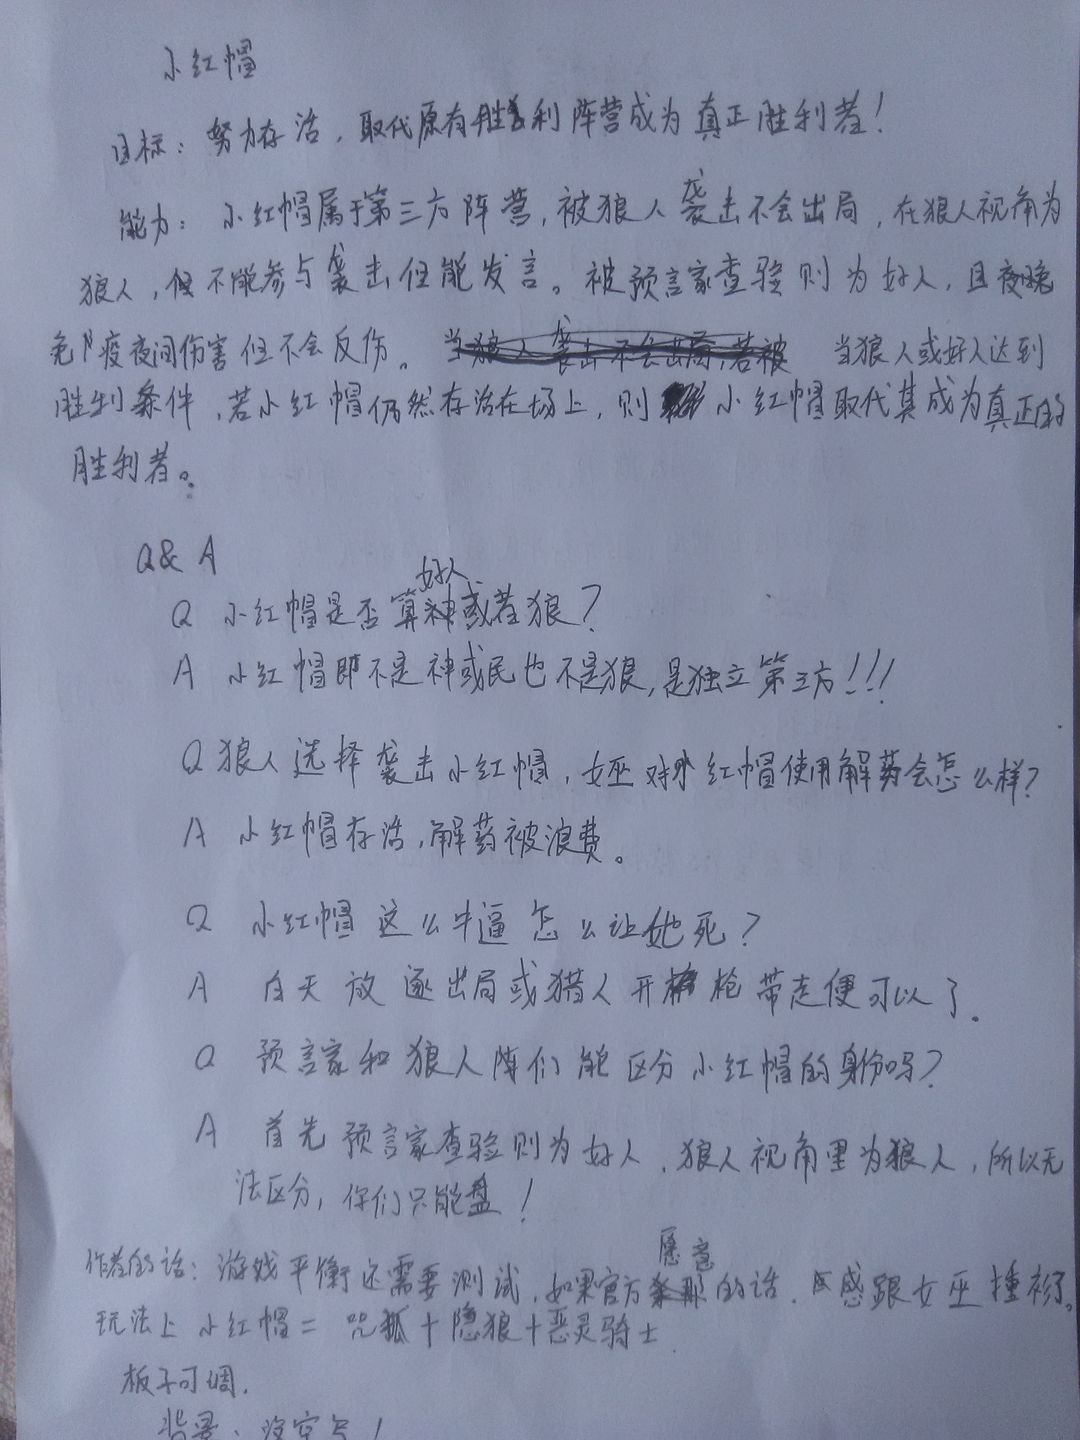 小红帽
目标：努力存活，取代原有胜利阵营成为真正胜利者！
能力：小红帽属于第三方阵营，被狼人袭击不会出局，在狼人视角为
狼人，但不能参与袭击但能发言。被预言家查验则为好人，且夜晚
免疫夜间伤害但不会反伤。当狼人袭击不会出局，若被 当狼人或好人达到
胜利条件，若小红帽仍然存活在场上，则小红帽取代其成为真正的
胜利者。
Q&A
好人
Q 小红帽是否算神或者狼？
A 小红帽即不是神或民也不是狼，是独立第三方！！！
Q 狼人选择袭击小红帽，女巫对小红帽使用解药会怎么样？
A 小红帽存活，解药被浪费。
Q 小红帽这么牛逼怎么让她死？
A 白天放逐出局或猎人开枪带走便可以了。
Q 预言家和狼人阵们能区分小红帽的身份吗？
A 首先预言家查验则为好人，狼人视角里为狼人，所以无
法区分，你们只能盘！
愿意
作者的话：游戏平衡还需要测试，如果官方的话，感跟女巫撞衫了。
玩法上小红帽=咒狐+隐狼+恶灵骑士.
板子可调.
背景：没空写！